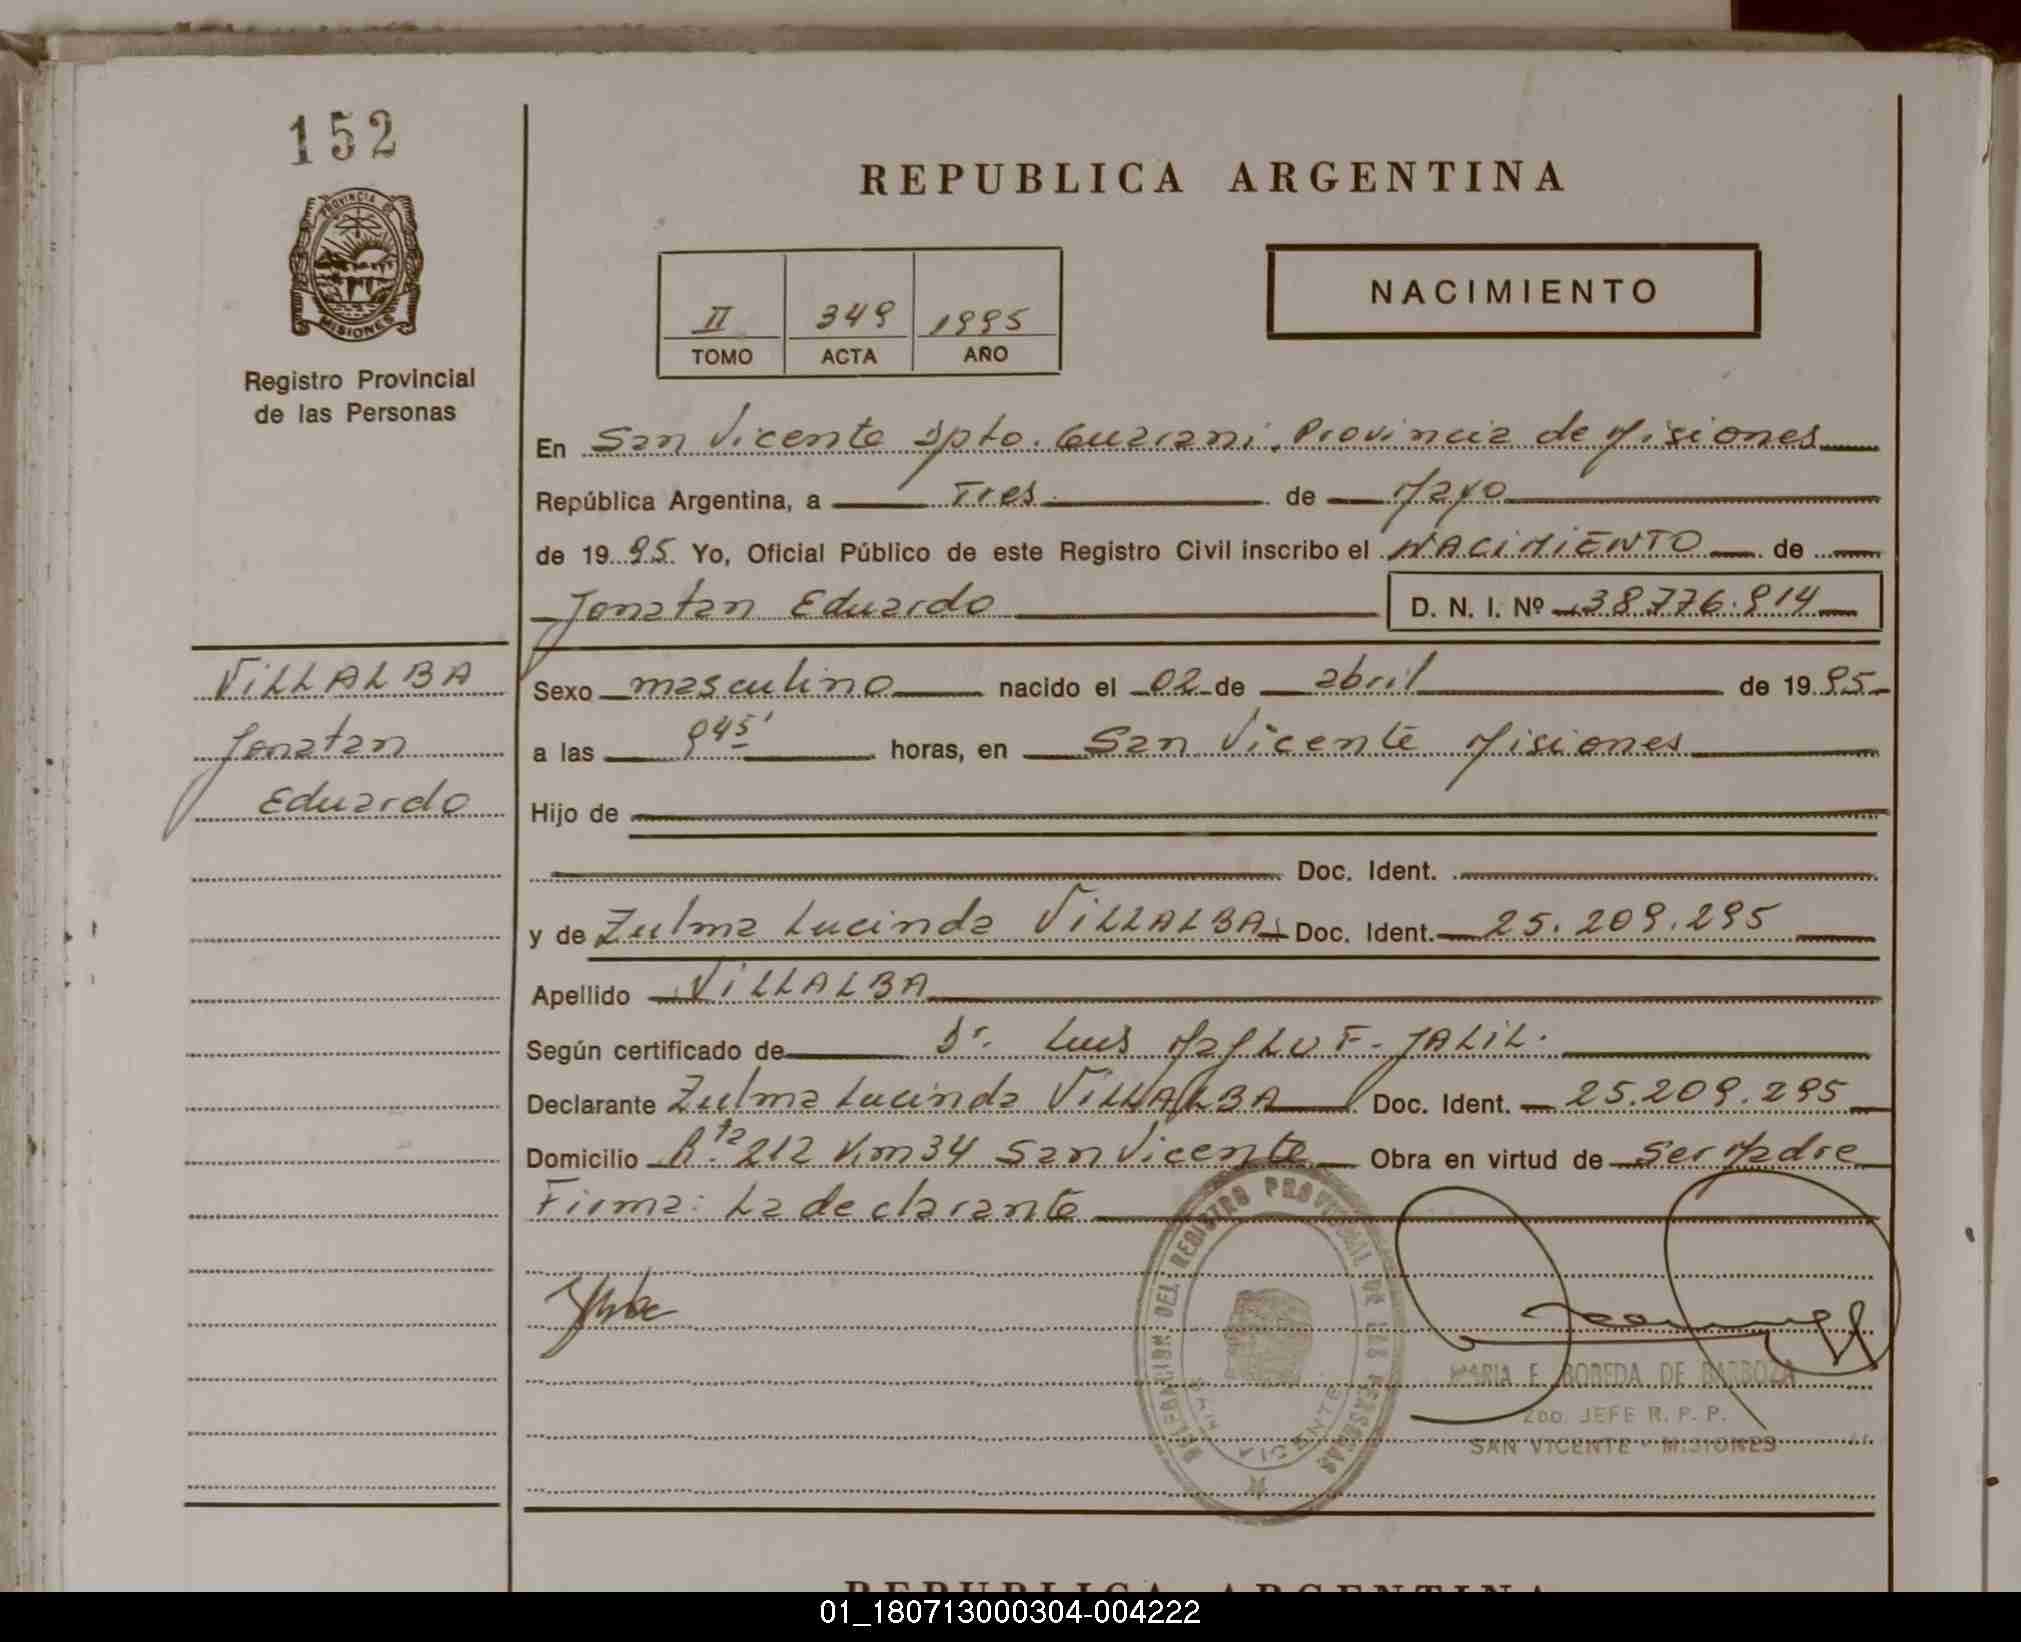 152
REPUBLICA ARGENTINA
PROVINCIA DE
MISIONES
Registro Provincial
de las Personas
II 349 1995
TOMO ACTA AÑO
NACIMIENTO
En San Vicente Dpto. Guarani. Provincia de Misiones
República Argentina, a Tres de Mayo
de 1995 Yo, Oficial Público de este Registro Civil inscribo el NACIMIENTO de
Jonatan Eduardo D. N. I. Nº 38.776.914
VILLALBA
Jonatan
Eduardo
Sexo masculino nacido el 02 de abril de 1995
a las 9 45' horas, en San Vicente Misiones
Hijo de
Doc. Ident.
y de Zulma Lucinda VILLALBA Doc. Ident. 25.209.295
Apellido VILLALBA
Según certificado de Dr. Luis F. JALIL.
Declarante Zulma Lucinda VILLALBA Doc. Ident. 25.209.295
Domicilio R.ta 212 Km 34 San Vicente Obra en virtud de Ser Madre
Firma: La declarante
DELEGACION DEL REGISTRO PROVINCIAL DE LAS PERSONAS
SAN VICENTE
MARIA E. BOBEDA DE BARBOZA
2do. JEFE R. P. P.
SAN VICENTE - MISIONES
REPUBLICA ARGENTINA
01_180713000304-004222